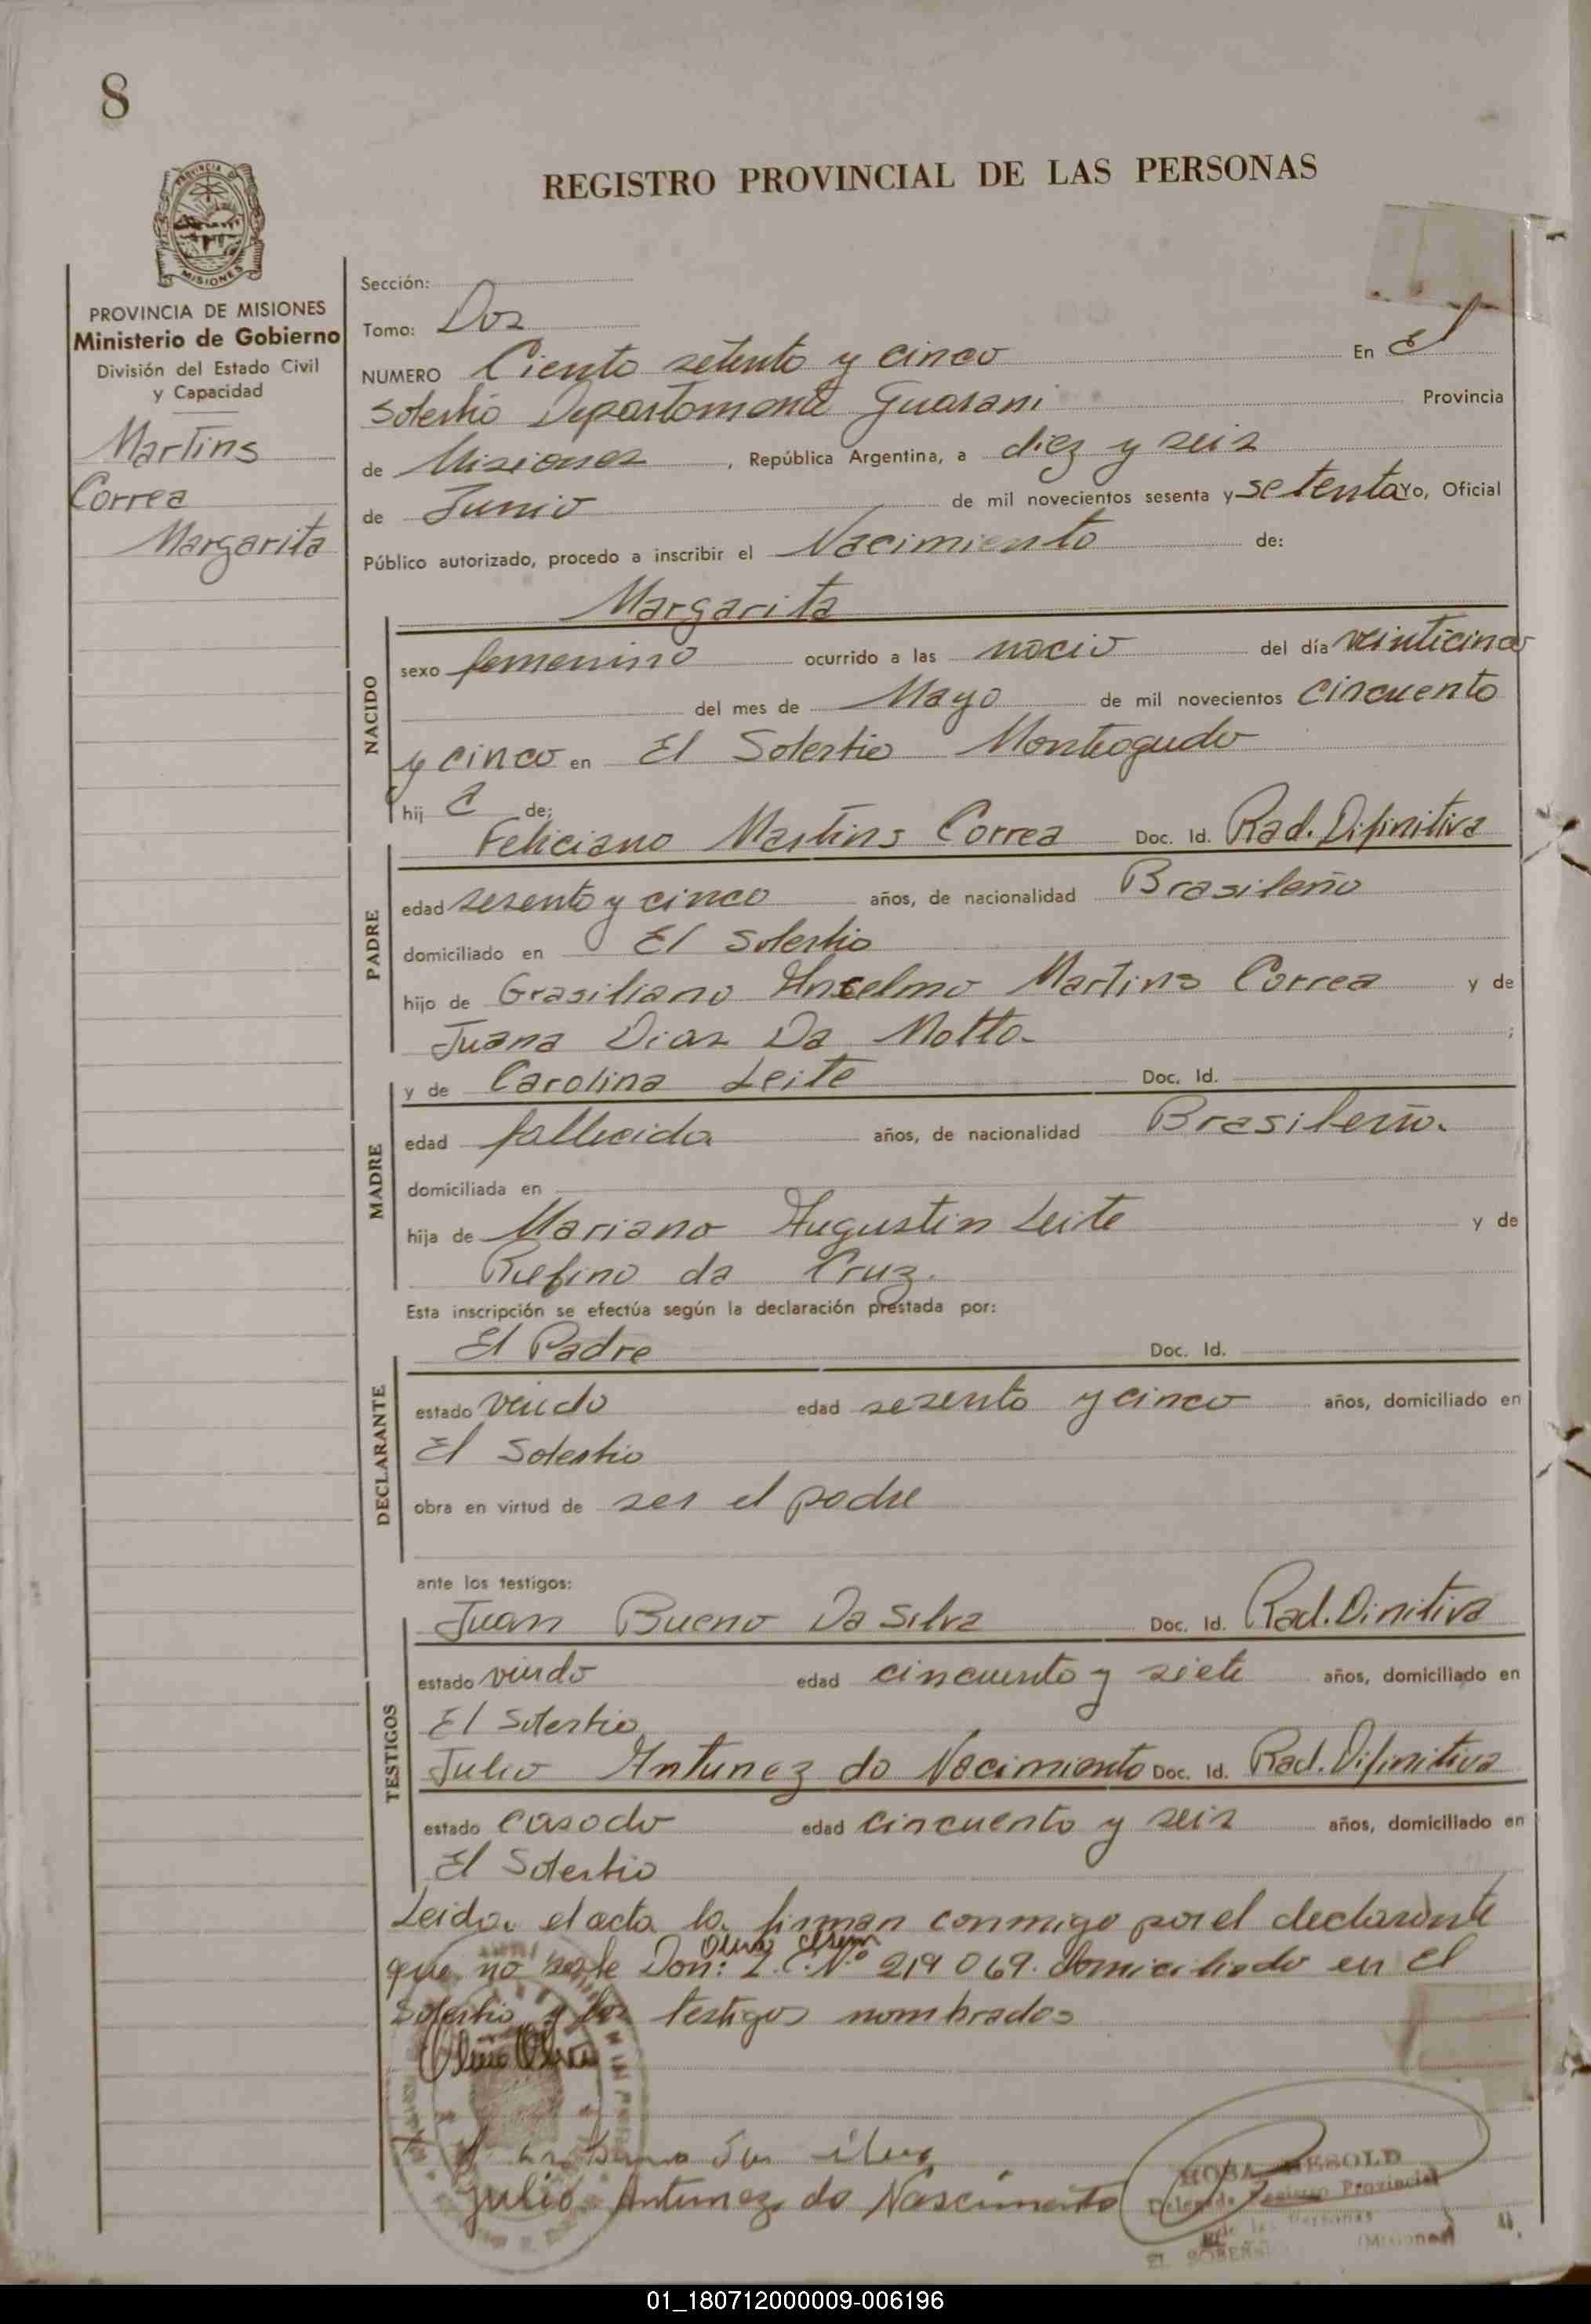 8
REGISTRO PROVINCIAL DE LAS PERSONAS
PROVINCIA DE
MISIONES
PROVINCIA DE MISIONES
Ministerio de Gobierno
División del Estado Civil
y Capacidad
Martins
Correa
Margarita
Sección:
Tomo: Dos
NUMERO Ciento setenta y cinco En El
Soberbio Departamento Guarani Provincia
de Misiones, República Argentina, a diez y seis
de Junio de mil novecientos sesenta y setenta Yo, Oficial
Público autorizado, procedo a inscribir el Nacimiento de:
Margarita
NACIDO
sexo femenino ocurrido a las nacio del día veinticinco
del mes de Mayo de mil novecientos cincuenta
y cinco en El Soberbio Monteagudo
hij a de:
Feliciano Martins Correa Doc. Id. Rad. Difinitiva
PADRE
edad sesenta y cinco años, de nacionalidad Brasileño
domiciliado en El Soberbio
hijo de Grasiliano Anselmo Martins Correa y de
Juana Dias Da Motta. ;
y de Carolina Leite Doc. Id.
MADRE
edad fallecida años, de nacionalidad Brasileña.
domiciliada en
hija de Mariano Augustin Leite y de
Rufino da Cruz.
Esta inscripción se efectúa según la declaración prestada por:
El Padre Doc. Id.
DECLARANTE
estado viudo edad sesenta y cinco años, domiciliado en
El Soberbio
obra en virtud de ser el padre
ante los testigos:
Juan Bueno Da Silva Doc. Id. Rad. Dinitiva
TESTIGOS
estado viudo edad cincuenta y siete años, domiciliado en
El Soberbio
Julio Antunez do Nacimiento Doc. Id. Rad. Difinitiva
estado casado edad cincuenta y seis años, domiciliado en
El Soberbio
Leida el acta la firman conmigo por el declarante
que no sabe Don: L.C.Nº 219069. domiciliado en El
Soberbio y los testigos nombrados
Julio Antunez do Nascimento
Provincial
de las Personas
(Misiones)
01_180712000009-006196